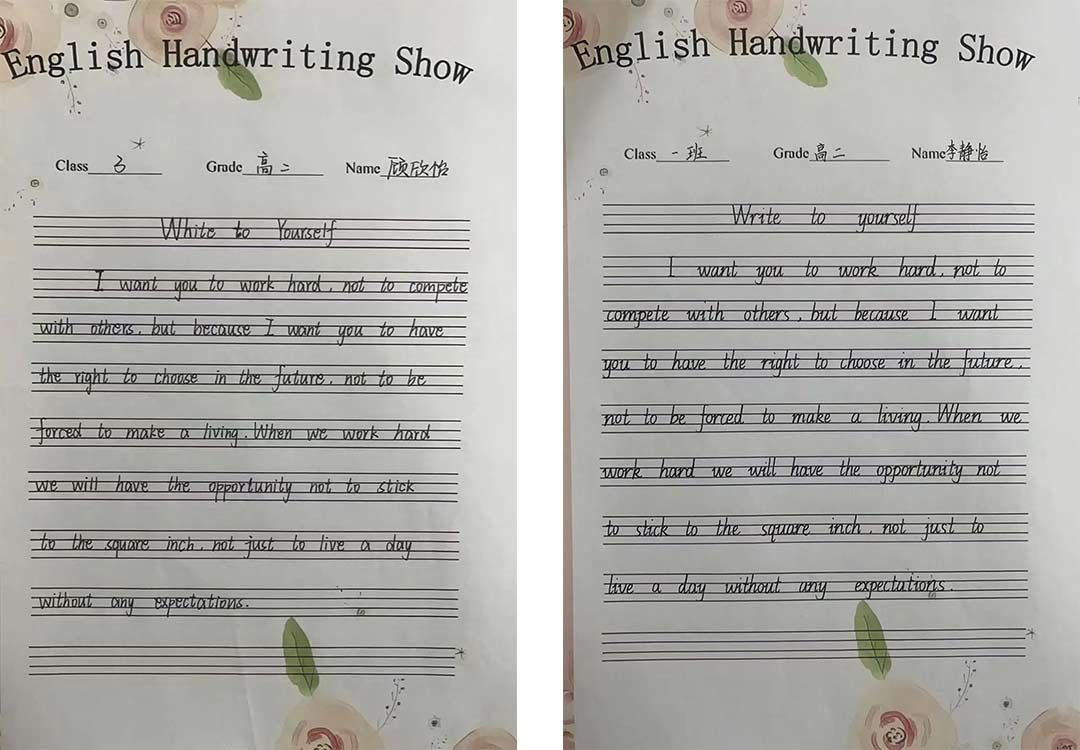 English Handwriting Show
Class 3 Grade 高二 Name 顾欣怡
White to Yourself
I want you to work hard, not to compete
with others, but because I want you to have
the right to choose in the future, not to be
forced to make a living. When we work hard
we will have the opportunity not to stick
to the square inch, not just to live a day
without any expectations.
English Handwriting Show
Class 一班 Grade 高二 Name 李静怡
Write to yourself
I want you to work hard, not to
compete with others, but because I want
you to have the right to choose in the future,
not to be forced to make a living. When we
work hard we will have the opportunity not
to stick to the square inch, not just to
live a day without any expectations.